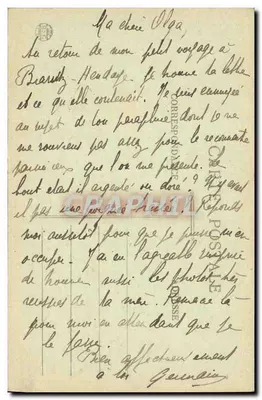 Ma chère Olga,
Au retour de mon petit voyage à
Biarritz-Hendaye je trouve ta lettre
et ce qu'elle contenait. Je suis ennuyée
au sujet de ton parapluie dont je ne
me souviens pas assez pour le reconnaître
parmi ceux que l'on me présente. Le
bout était il argenté ou doré? N'y avait
il pas une Réponds
moi aussitôt pour que je puisse m'en
occuper. J'ai eu l'agréable
de trouver aussi les photos
de ta mère. Remercie la
pour moi en attendant que je
le fasse.
Bien affectueusement
à toi Germaine
CORRESPONDANCE
CARTE POSTALE
ADRESSE